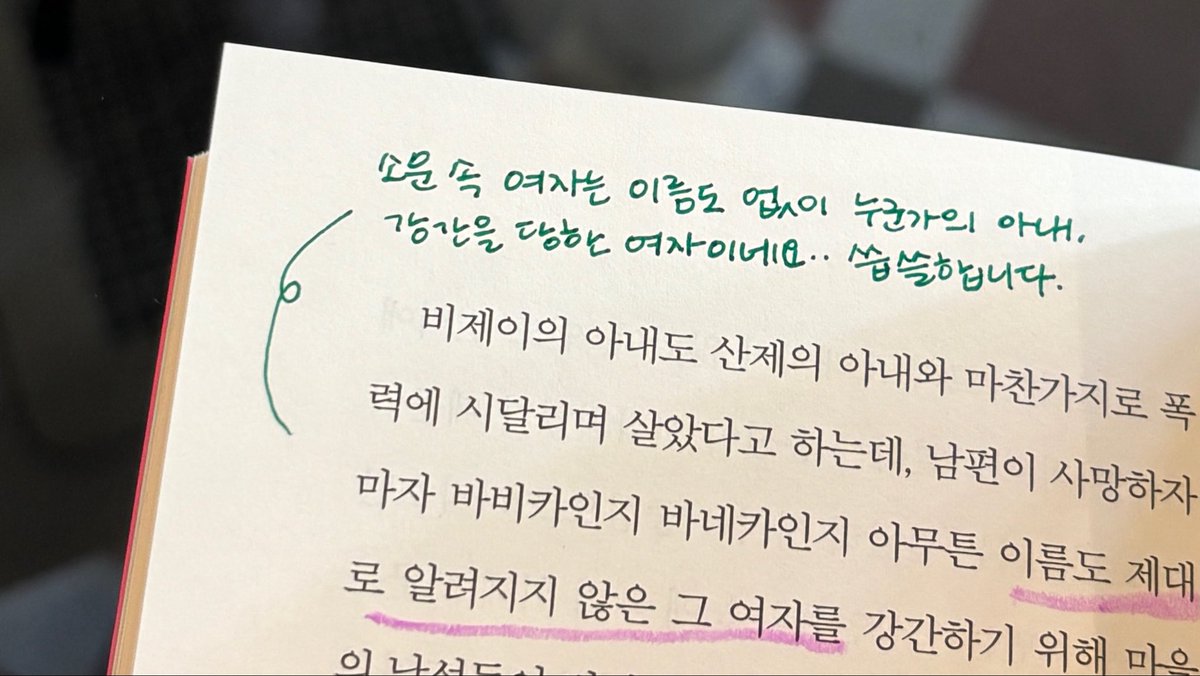 소문 속 여자는 이름도 없이 누군가의 아내,
강간을 당한 여자이네요.. 씁쓸합니다.
비제이의 아내도 산제의 아내와 마찬가지로 폭
력에 시달리며 살았다고 하는데, 남편이 사망하자
마자 바비카인지 바네카인지 아무튼 이름도 제대
로 알려지지 않은 그 여자를 강간하기 위해 마을
의 남성들이